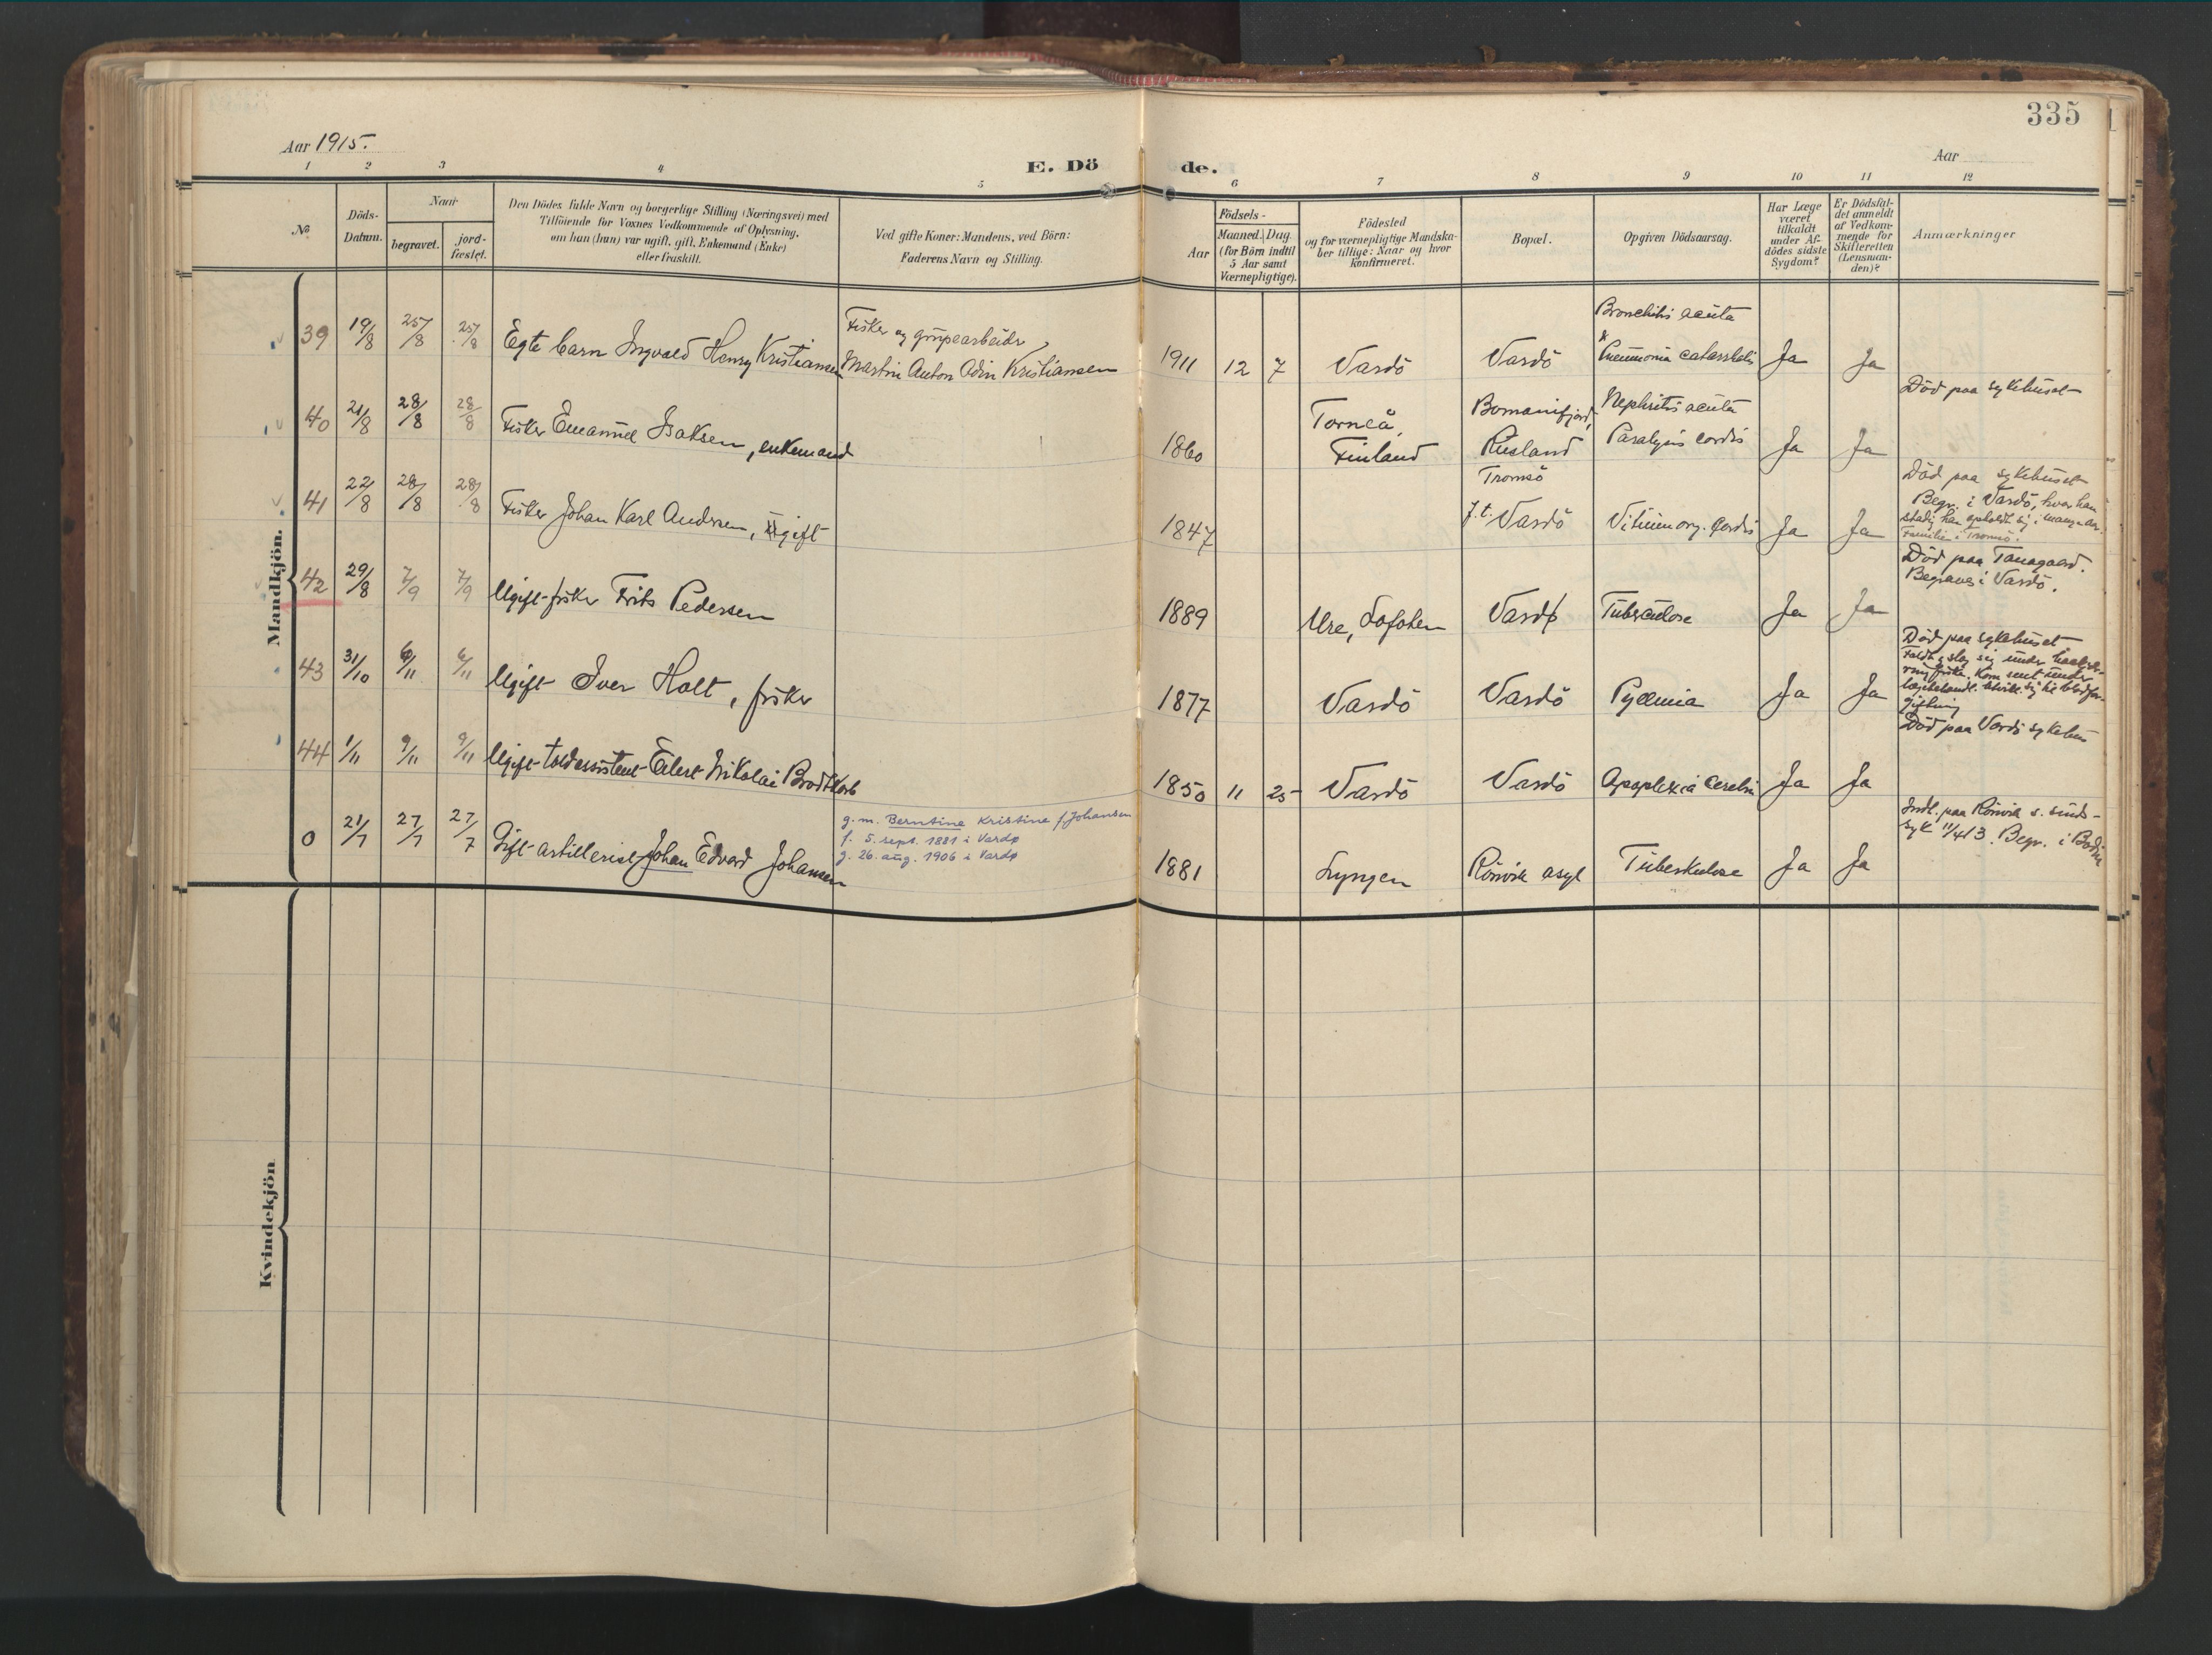 335
Aar 1915.
Aar
E. Dö de.
1 2 3 4 5 6 7 8 9 10 11 12
No
Döds-
Datum.
Naar
begravet.
jord-
fæstet.
Den Dödes fulde Navn og borgerlige Stilling (Næringsvei) med
Tilföiende for Voxnes Vedkommende af Oplysning,
om han (hun) var ugift, gift, Enkemand (Enke)
eller fraskilt.
Ved gifte Koner: Mandens, ved Börn:
Faderens Navn og Stilling.
Födsels-
Aar
Maaned. Dag
(for Börn indtil
5 Aar samt
Værnepligtige).
Födested
og for værnepligtige Mandska-
ber tillige: Naar og hvor
konfirmeret.
Bopæl.
Opgiven Dödsaarsag.
Har Læge
været
tilkaldt
under Af-
dödes sidste
Sygdom?
Er Dödsfal-
det anmeldt
af Vedkom-
mende for
Skifteretten
(Lensman-
den)?
Anmærkninger
Mandkjön.
39 19/8 25/8 25/8 Egte barn Ingvald Henry Kristiansen
Fisker og grupearbeider
Martin Anton Odin Kristiansen
1911 12 7 Vardö Vardö
Bronchitis acuta
& Pneumonia catarrhalis
Ja Ja
40 21/8 28/8 28/8 Fisker Emanuel Isaksen, enkemand
1860
Torneå,
Finland
Bomanifjord,
Rusland
Nephritis acuta
Paralysis cordis
Ja Ja
Död paa sykehuset
41 22/8 28/8 28/8 Fisker Johan Karl Andersen, gift
1847
Tromsö
f.t. Vardö
Vitium org. cordis
Ja Ja
Död paa sykehuset
Begr. i Vardö, hvor han
stadig har opholdt sig i mange aar.
Familie i Tromsö.
42 29/8 7/9 7/9 Ugift fisker Frits Pedersen
1889 Ure, Lofoten Vardø Tuberculose Ja Ja
Död paa Tanagaard.
Begraves i Vardö.
43 31/10 6/11 6/11 Ugift Iver Holt, fisker
1877 Vardö Vardö Pyæmia Ja Ja
Död paa sykehuset
Faldt & slog sig under
fiske. Kom sent under
lægebehandl. utvikl. sig til blodfor-
giftning
44 1/11 9/11 9/11 Ugift toldassistent Eilert Nikolai Brodtkorb
1850 11 25 Vardö Vardö Apoplexia cerebri Ja Ja
Död paa Vardö sykehus
0 21/7 27/7 27/7 Gift artillerist Johan Edvard Johansen
g.m. Berntine Kristine f. Johansen
f. 5. sept. 1881 i Vardø
g. 26. aug. 1906 i Vardø
1881 Lyngen Rönvik asyl Tuberkulose Ja Ja
Indl. paa Rönvik s. sinds-
syk 11/4 13. Begr. i Bodin
Kvindekjön